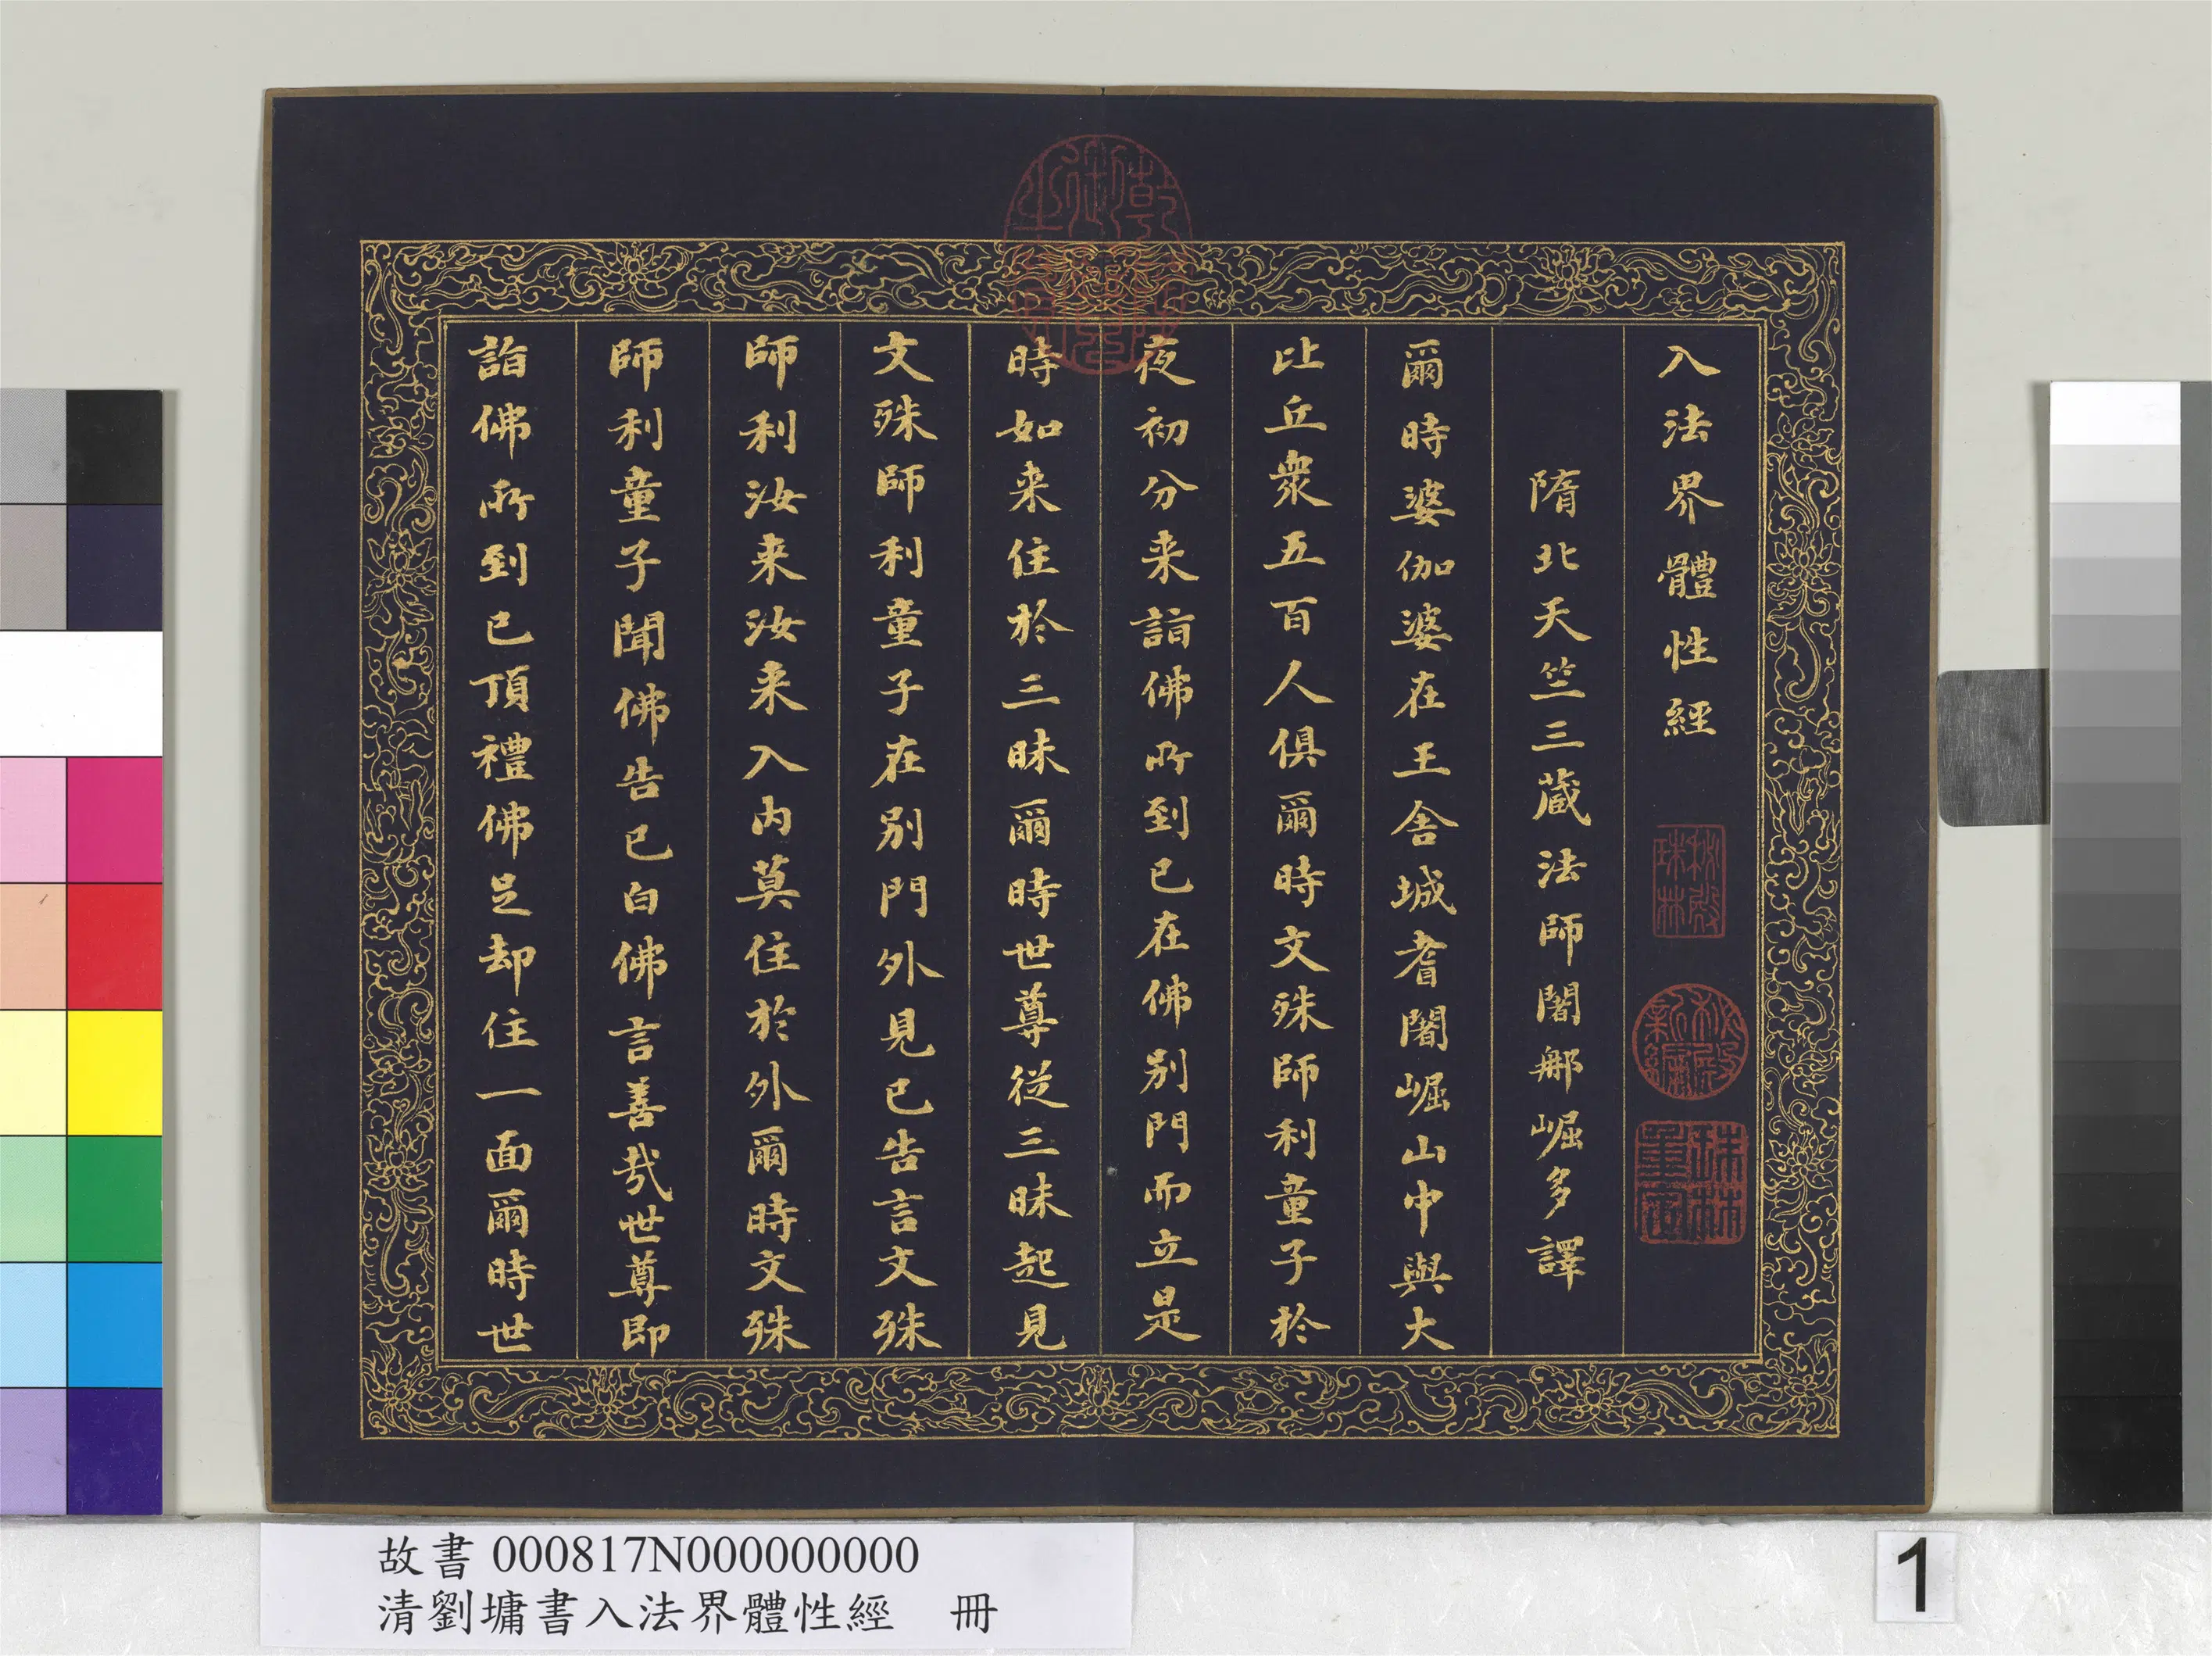 入法界體性經
隋北天竺三藏法師闍那崛多譯
爾時婆伽婆在王舍城耆闍崛山中與大
比丘衆五百人俱爾時文殊師利童子於
夜初分来詣佛所到已在佛別門而立是
時如来住於三昧爾時世尊從三昧起見
文殊師利童子在別門外見已告言文殊
師利汝来汝来入内莫住於外爾時文殊
師利童子聞佛告已白佛言善哉世尊即
詣佛所到已頂禮佛足却住一面爾時世
秘殿珠林
秘殿新編
珠林重定
故書 000817N000000000
清劉墉書入法界體性經 冊
1